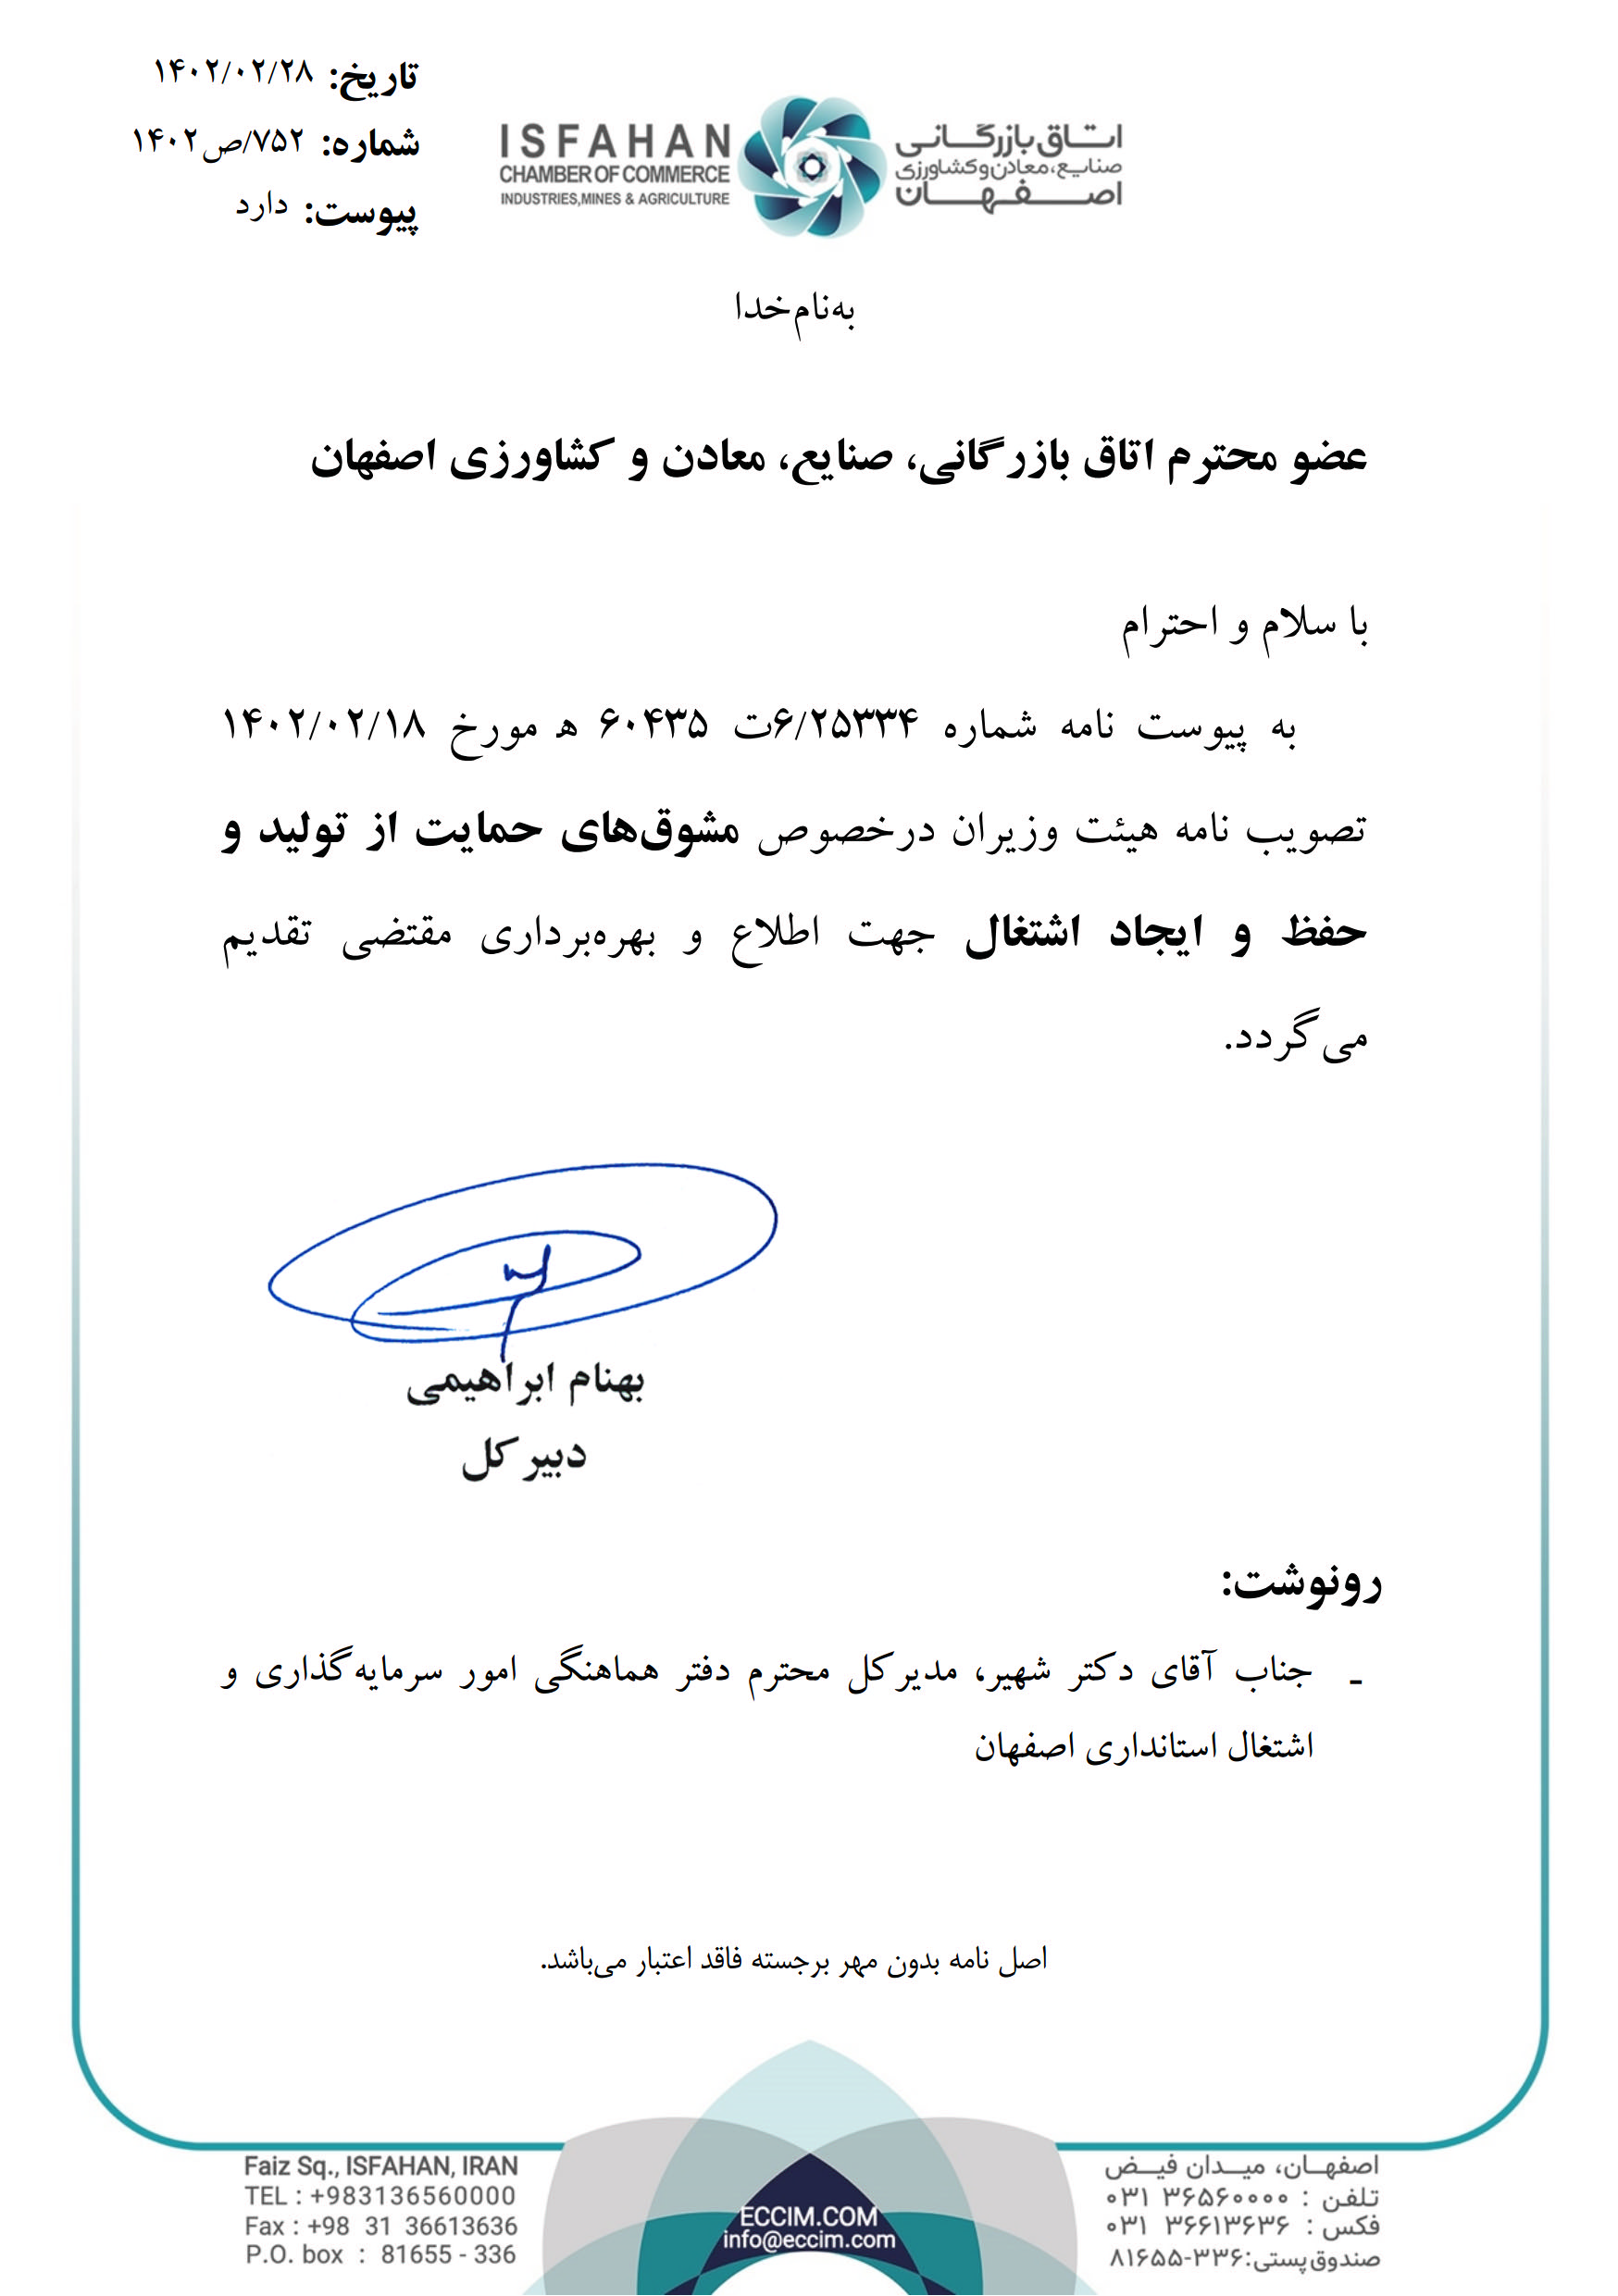 تاریخ: ۱۴۰۲/۰۲/۲۸
شماره: ۷۵۲/ص۱۴۰۲
پیوست: دارد
ISFAHAN
CHAMBER OF COMMERCE
INDUSTRIES,MINES & AGRICULTURE
اتاق بازرگانی
صنایع، معادن و کشاورزی
اصفهان
به‌نام‌خدا
عضو محترم اتاق بازرگانی، صنایع، معادن و کشاورزی اصفهان
با سلام و احترام
به پیوست نامه شماره ۶/۲۵۳۳۴ت ۶۰۴۳۵ ه مورخ ۱۴۰۲/۰۲/۱۸
تصویب نامه هیئت وزیران درخصوص مشوق‌های حمایت از تولید و
حفظ و ایجاد اشتغال جهت اطلاع و بهره‌برداری مقتضی تقدیم
می‌گردد.
بهنام ابراهیمی
دبیر کل
رونوشت:
- جناب آقای دکتر شهیر، مدیرکل محترم دفتر هماهنگی امور سرمایه‌گذاری و
اشتغال استانداری اصفهان
اصل نامه بدون مهر برجسته فاقد اعتبار می‌باشد.
Faiz Sq., ISFAHAN, IRAN
TEL : +983136560000
Fax : +98 31 36613636
P.O. box : 81655 - 336
ECCIM.COM
info@eccim.com
اصفهــان، میــدان فیــض
تلفن : ۰۳۱ ۳۶۵۶۰۰۰۰
فکس : ۰۳۱ ۳۶۶۱۳۶۳۶
صندوق پستی: ۸۱۶۵۵-۳۳۶